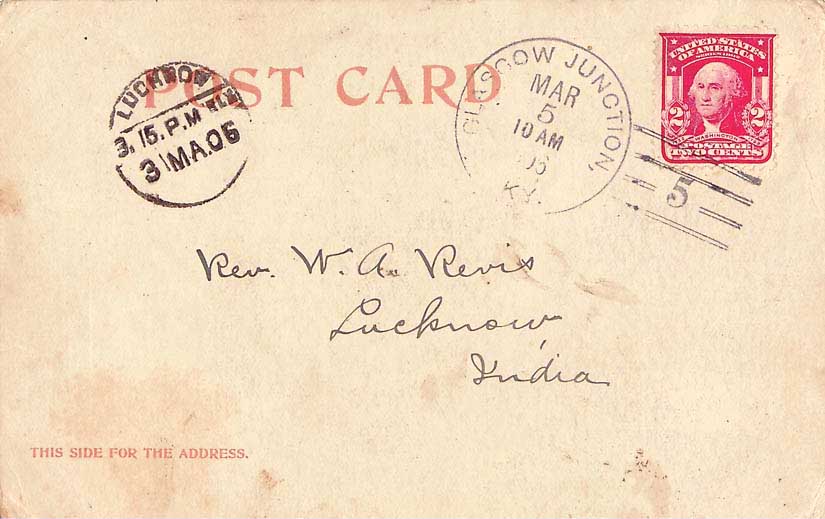 POST CARD
LUCKNOW
3.15.P.M
31 MA.06
GLASGOW JUNCTION,
MAR
5
10 AM
06
KY.
UNITED STATES
OF AMERICA
2 2
WASHINGTON
POSTAGE
TWO CENTS
5
Rev. W. A. Revis
Lucknow
India
THIS SIDE FOR THE ADDRESS.